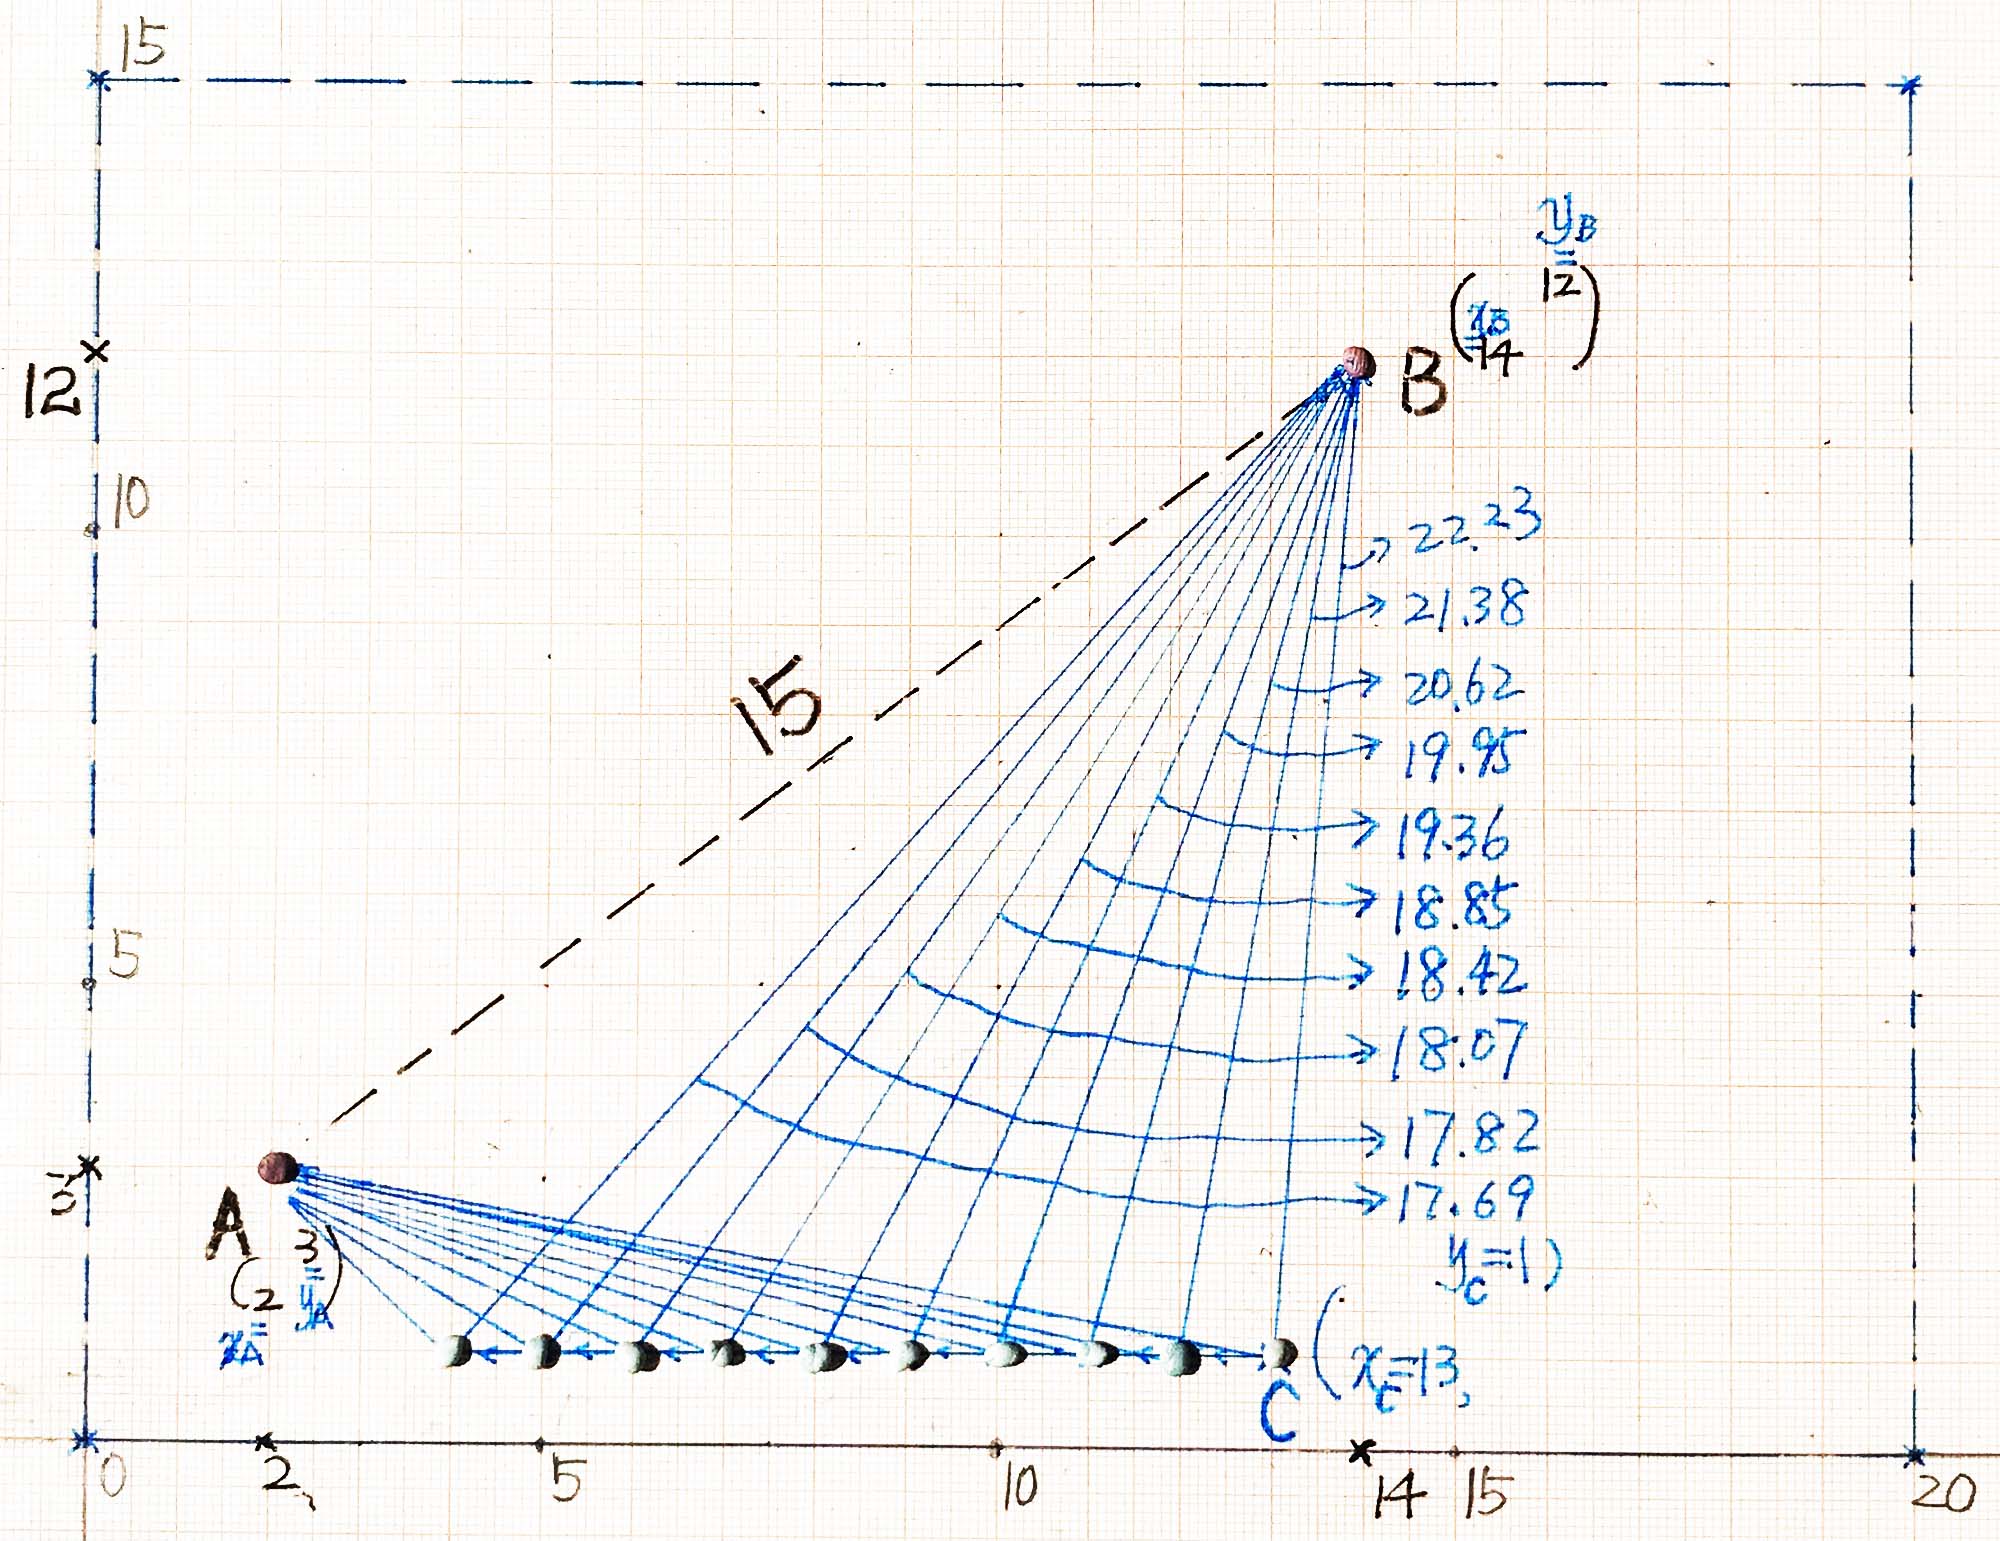 15
y_B
=
12
(x_B = 14)
B
12
10
22.23
21.38
20.62
15
19.95
19.36
18.85
5
18.42
18.07
17.82
3
17.69
A
(2 3)
= =
x_A y_A
y_C=1)
(x_C=13,
C
0
2
5
10
14
15
20